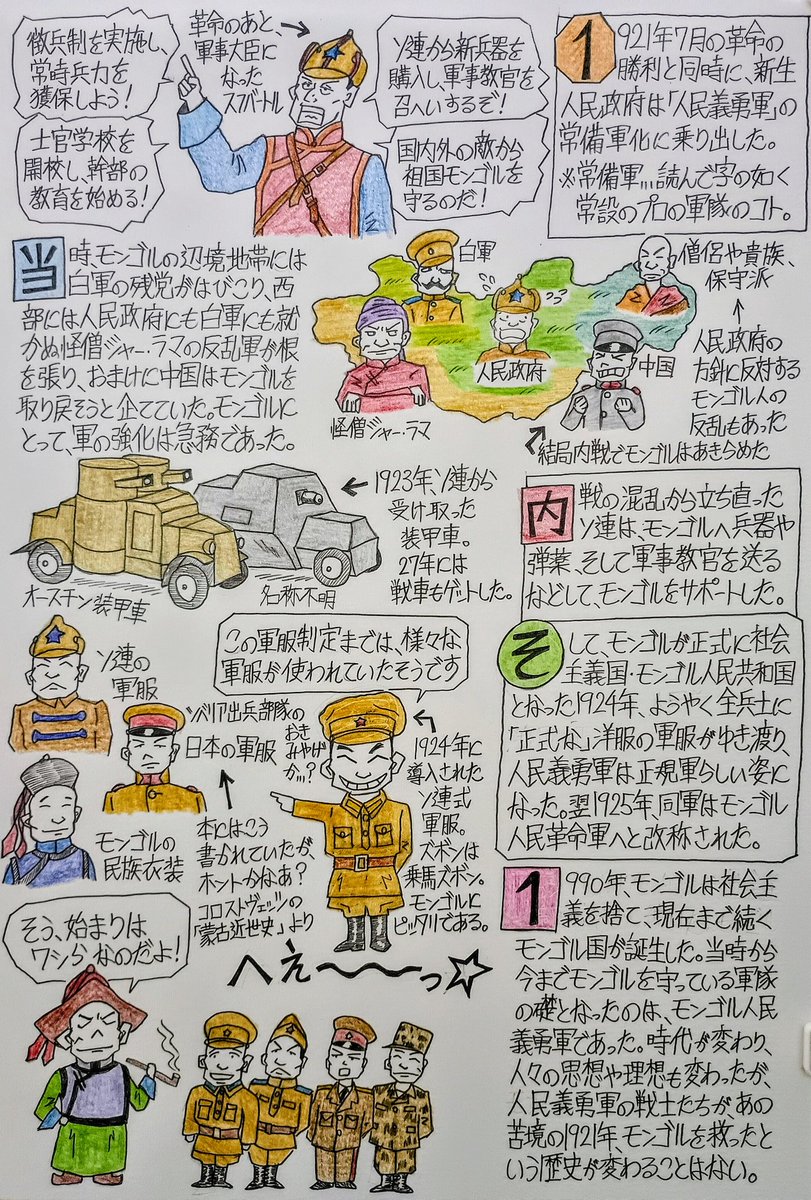 1921年7月の革命の
勝利と同時に、新生
人民政府は「人民義勇軍」の
常備軍化に乗り出した。
※常備軍…読んで字の如く
常設のプロの軍隊のコト。
革命のあと、
軍事大臣に
なった
スフバートル
ソ連から新兵器を
購入し、軍事教官を
召へいするぞ!
国内外の敵から
祖国モンゴルを
守るのだ!
徴兵制を実施し、
常時兵力を
獲保しよう!
士官学校を
開校し、幹部の
教育を始める!
当時、モンゴルの辺境地帯には
白軍の残党がはびこり、西
部には人民政府にも白軍にも就
かぬ怪僧ジャー・ラマの反乱軍が根
を張り、おまけに中国はモンゴルを
取り戻そうと企てていた。モンゴルに
とって、軍の強化は急務であった。
白軍
僧侶や貴族、
保守派
人民政府の
方針に反対する
モンゴル人の
反乱もあった
人民政府
中国
怪僧ジャー・ラマ
結局内戦でモンゴルはあきらめた
内戦の混乱から立ち直った
ソ連は、モンゴルへ兵器や
弾薬、そして軍事教官を送る
などして、モンゴルをサポートした。
1923年、ソ連から
受け取った
装甲車。
27年には
戦車もゲットした。
オースチン装甲車
名称不明
そして、モンゴルが正式に社会
主義国・モンゴル人民共和国
となった1924年、ようやく全兵士に
「正式な」洋服の軍服がゆき渡り、
人民義勇軍は正規軍らしい姿に
なった。翌1925年、同軍はモンゴル
人民革命軍へと改称された。
この軍服制定までは、様々な
軍服が使われていたそうです
ソ連の
軍服
シベリア出兵部隊の
おき
みやげ
か…?
日本の軍服
モンゴルの
民族衣装
本にはこう
書かれていたが、
ホントかなあ?
コロストヴェッツの
「蒙古近世史」より
1924年に
導入された
ソ連式
軍服。
ズボンは
乗馬ズボン。
モンゴルに
ピッタリである。
へぇ〜〜っ☆
1990年、モンゴルは社会主
義を捨て、現在まで続く
モンゴル国が誕生した。当時から
今までモンゴルを守っている軍隊
の礎となったのは、モンゴル人民
義勇軍であった。時代が変わり、
人々の思想や理想も変わったが、
人民義勇軍の戦士たちが、あの
苦境の1921年、モンゴルを救ったと
いう歴史が変わることはない。
そう、始まりは
ワシらなのだよ!